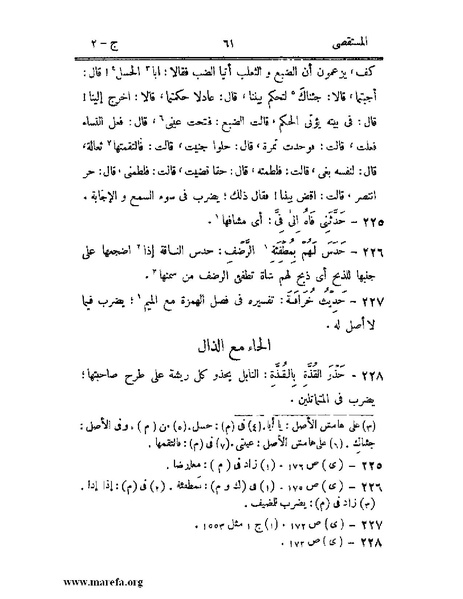 المستقصى ٦١ ج - ٢
كف، يزعمون أن الضبع و الثعلب أتيا الضب فقالا: أبا٣ الحسل٤! قال:
أجبتما، قالا: جئناك٥ لتحكم بيننا، قال: عادلا حكمتما، قالا: اخرج إلينا!
قال: فى بيته يؤتى الحكم، قالت الضبع: فتحت عيبتى٦، قال: فعل النساء
فعلت، قالت: فوجدت تمرة، قال: حلوا جنيت، قالت: فالتقمتها٧ ثعالة،
قال: لنفسه بغى، قالت: فلطمته، قال: حقا قضيت، قالت: فلطمنى، قال: حر
انتصر، قالت: اقض بيننا! فقال ذلك؛ يضرب فى سوء السمع و الإجابة.
٢٢٥ - حَدَّثَنِى فَاهُ إِلىٰ فِىَّ: أى مشافها١.
٢٢٦ - حَدَسَ لَهُمْ بِمُطْفِئَةِ١ الرَّضْفِ: حدس الناقة إذا٢ اضجعها على
جنبها للذبح أى ذبح لهم شاة تطفئ الرضف من سمنها٣.
٢٢٧ - حَدِيْثُ خُرَافَةَ: تفسيره فى فصل الهمزة مع الميم١؛ يضرب فيما
لا أصل له.
الحاء مع الذال
٢٢٨ - حَذْرَ القُذَّةِ بِالْقُذَّةِ: النابل يحذو كل ريشة على طرح صاحبتها؛
يضرب فى المتماثلين.
(٣) على هامش الأصل: يا أبا. (٤) فى (م): حسل. (٥) من (م)، وفى الأصل:
جئتاك. (٦) على هامش الأصل: عينى. (٧) فى (م): فالتقمها.
٢٢٥ - (ى) ص ١٧٦. (١) زاد فى (م): معارضا.
٢٢٦ - (ى) ص ١٧٥. (١) فى (ك و م): بمطفئة. (٢) فى (م): إذا إذا.
(٣) زاد فى (م): يضرب للضيف.
٢٢٧ - (ى) ص ١٧٢. (١) ج ١ مثل ١٥٥٣.
٢٢٨ - (ى) ص ١٧٣.
www.marefa.org